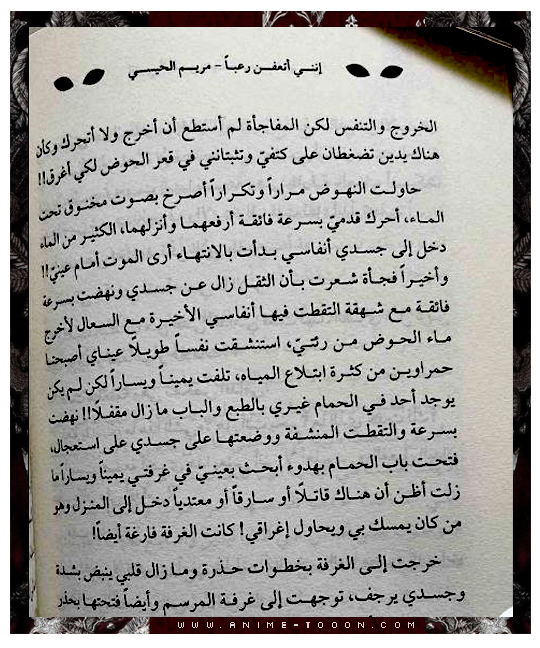 إنني أتعفن رعباً - مريم الحيسي
الخروج والتنفس لكن المفاجأة لم أستطع أن أخرج ولا أتحرك وكأن
هناك يدين تضغطان على كتفيّ وتثبتانني في قعر الحوض لكي أغرق!!
حاولت النهوض مراراً وتكراراً أصرخ بصوت مخنوق تحت
الماء، أحرك قدميّ بسرعة فائقة أرفعهما وأنزلهما، الكثير من الماء
دخل إلى جسدي أنفاسي بدأت بالانتهاء أرى الموت أمام عينيّ!!
وأخيراً فجأة شعرت بأن الثقل زال عن جسدي ونهضت بسرعة
فائقة مع شهقة التقطت فيها أنفاسي الأخيرة مع السعال لأخرج
ماء الحوض من رئتيّ، استنشقت نفساً طويلاً عيناي أصبحتا
حمراوين من كثرة ابتلاع المياه، تلفت يميناً ويساراً لكن لم يكن
يوجد أحد في الحمام غيري بالطبع والباب ما زال مقفلاً!! نهضت
بسرعة والتقطت المنشفة ووضعتها على جسدي على استعجال،
فتحت باب الحمام بهدوء أبحث بعينيّ في غرفتي يميناً ويساراً ما
زلت أظن أن هناك قاتلاً أو سارقاً أو معتدياً دخل إلى المنزل وهو
من كان يمسك بي ويحاول إغراقي! كانت الغرفة فارغة أيضاً!
خرجت إلى الغرفة بخطوات حذرة وما زال قلبي ينبض بشدة
وجسدي يرجف، توجهت إلى غرفة المرسم وأيضاً فتحتها بحذر
WWW.ANIME-TOOON.COM